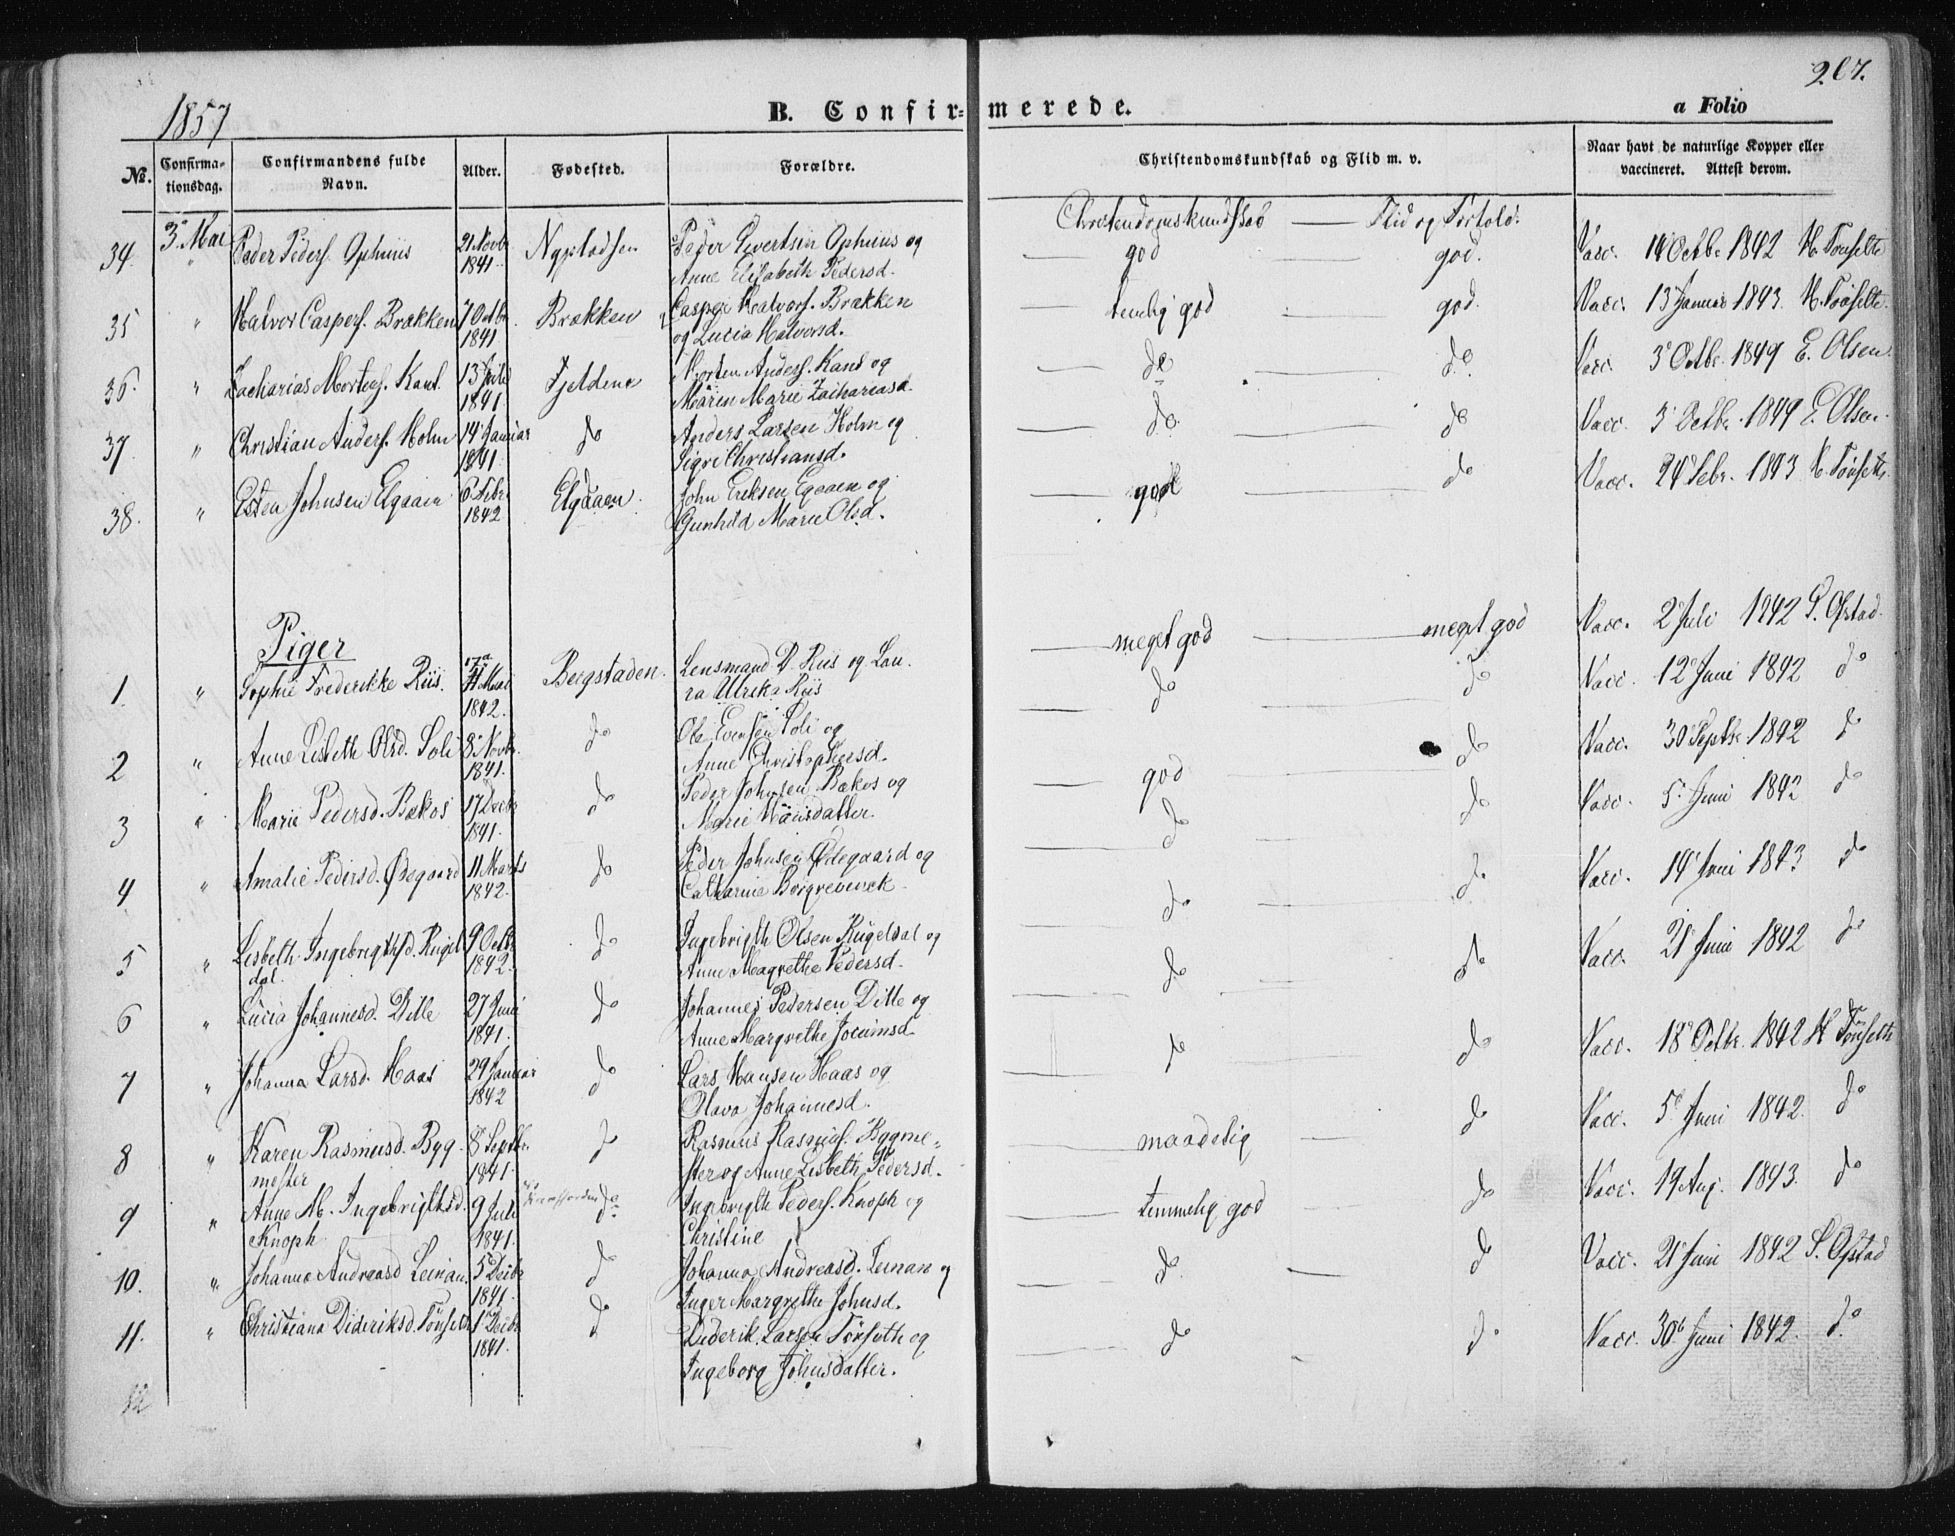 1857
B. Confirmerede.
a Folio
207.
№.
Confirmationsdag.
Confirmandens fulde Navn.
Alder.
Fødested.
Forældre.
Christendomskundskab og Flid m. v.
Naar havt de naturlige Kopper eller vaccineret. Attest derom.
Christendomskundskab — Flid og Forhold.
34. 3 Mai Peder Peders. Ophuus 21 Novbr 1841 Peder Evertsen Ophuus og
Anne Elisabeth Pedersd. — god — god. Vacc. 14 Octbr 1842 H. Tönseth
35 " Halvor Caspers. Brækken 7 Octbr 1841 Brækken Casper Halvors. Brækken
og Lucia Halvorsd. — temelig god — god. Vacc. 13 Januar 1843. H. Tönseth
36. " Zacharias Mortens. Kant 13 1841 Fjeldene Morten Anders. Kant og
Maren Marie Zachariasd. — do — do. Vacc. 3 Octbr. 1849 E. Olsen
37. " Christian Anders. Holm 14 Januar 1841 do Anders Larsen Holm og
Sigri Christiansd. — do — do Vacc. 3 Octbr. 1849 E. Olsen.
38. " Johnsen Elgaaen 6 Febr 1842 Elgaaen John Eriksen Egaaen og
Gunhild Marie Olsd. — god — do Vacc. 24 Febr. 1843 H. Tönseth
Piger
1. " Sophie Frederikke Riis. Mai 1842. Bergstaden. Lensmand D. Riis og Lau-
ra Ulrika Riis — meget god — meget god Vacc. 2 Juli 1842 P. Ofstad.
2 " Anne Lisbeth Olsd. Soli 8 Novbr. 1841. do Ole Evensen Soli og
Anne Christophersd. — do — do Vacc. 12 Juni 1842 do
3 " Marie Pedersd. Bækos 17 Decbr 1841. do Peder Johnsen Bækos og
Marie Hansdatter. — god — do Vacc. 30 Septbr 1842 do
4 " Amalie Pedersd. Ødegaard 11 Marts 1842. do Peder Johnsen Ødegaard og
Catharina Borgrevenck — do — do Vacc. 5 Juni 1842 do
5 " Lisbeth Ingebrigthsd. Rugel
dal. 9 Octb 1842. do Ingebrigth Olsen Rugeldal og
Anne Magrethe Pedersd. — do — do Vacc. 14 Juni 1843 do
6 " Lucia Johannesd. Dille 27 Juni 1841. do Johannes Pedersen Dille og
Anne Margrethe Jocumsd. — do — do Vacc. 21 Juni 1842 do
7 " Johanna Larsd. Haas 29 Januar 1842 do Lars Hansen Haas og
Olava Johannesd. — do — do Vacc. 18 Octbr. 1842 H Tönseth
8 " Karen Rasmusd. Byg
mester 8 Septbr. 1841. do Rasmus Rasmus. Bygme-
ster og Anne Lisbeth Pedersd. — maadelig — do Vacc. 5 Juni 1842. do
9 " Anne M. Ingebrigthsd.
Knoph 9 Juli 1841. do Ingebrigth Peders. Knoph og
Christine — temmelig god — do Vacc. 19 Aug. 1843. do
10. " Johanna Andreasd Leinan. 5 Decbr 1841. do Johanna Andreasd. Leinan og
Inger Margrethe Johnsd. — do. — do Vacc. 21 Juni 1842 P. Ofstad
11. " Christiana Dideriksd. Tönseth 1 Decbr 1841. do Diderik Larsen Tönseth og
Ingeborg Johnsdatter. — do — do Vacc. 30 Juni 1842. do.
12